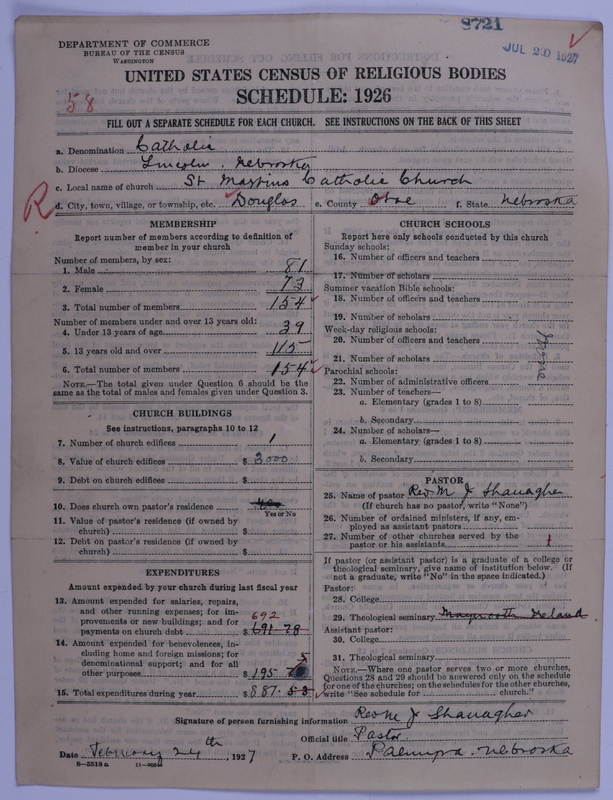 8721
DEPARTMENT OF COMMERCE
BUREAU OF THE CENSUS
WASHINGTON
JUL 20 1927
UNITED STATES CENSUS OF RELIGIOUS BODIES
SCHEDULE: 1926
58
FILL OUT A SEPARATE SCHEDULE FOR EACH CHURCH. SEE INSTRUCTIONS ON THE BACK OF THIS SHEET
a. Denomination Catholic
b. Diocese Lincoln, Nebraska
c. Local name of church St Martins Catholic Church
R d. City, town, village, or township, etc. Douglas e. County Otoe f. State Nebraska
MEMBERSHIP
Report number of members according to definition of
member in your church
Number of members, by sex:
1. Male 81
2. Female 73
3. Total number of members 154
Number of members under and over 13 years old:
4. Under 13 years of age 39
5. 13 years old and over 115
6. Total number of members 154
NOTE.—The total given under Question 6 should be the
same as the total of males and females given under Question 3.
CHURCH BUILDINGS
See instructions, paragraphs 10 to 12
7. Number of church edifices 1
8. Value of church edifices $ 3000
9. Debt on church edifices $
10. Does church own pastor's residence
Yes or No
11. Value of pastor's residence (if owned by
church) $
12. Debt on pastor's residence (if owned by
church) $
EXPENDITURES
Amount expended by your church during last fiscal year
13. Amount expended for salaries, repairs,
and other running expenses; for im-
provements or new buildings; and for
692
payments on church debt $ 691 78
14. Amount expended for benevolences, in-
cluding home and foreign missions; for
denominational support; and for all
5
other purposes $ 195
15. Total expenditures during year $ 887. 53
CHURCH SCHOOLS
Report here only schools conducted by this church
Sunday schools:
16. Number of officers and teachers
17. Number of scholars
Summer vacation Bible schools:
18. Number of officers and teachers
19. Number of scholars
Week-day religious schools:
20. Number of officers and teachers
None
21. Number of scholars
Parochial schools:
22. Number of administrative officers
23. Number of teachers—
a. Elementary (grades 1 to 8)
b. Secondary
24. Number of scholars—
a. Elementary (grades 1 to 8)
b. Secondary
PASTOR
25. Name of pastor Rev M J Shanagher
(If church has no pastor, write "None")
26. Number of ordained ministers, if any, em-
ployed as assistant pastors
27. Number of other churches served by the
pastor or his assistants 1
If pastor (or assistant pastor) is a graduate of a college or
theological seminary, give name of institution below. (If
not a graduate, write "No" in the space indicated.)
Pastor:
28. College
29. Theological seminary Maynooth Ireland
Assistant pastor:
30. College
31. Theological seminary
NOTE.—Where one pastor serves two or more churches,
Questions 28 and 29 should be answered only on the schedule
for one of the churches; on the schedules for the other churches,
write "See schedule for church."
Signature of person furnishing information Rev M J Shanagher
Official title Pastor
Date February 24th, 1927 P. O. Address Palmyra, Nebraska
8—5518 a